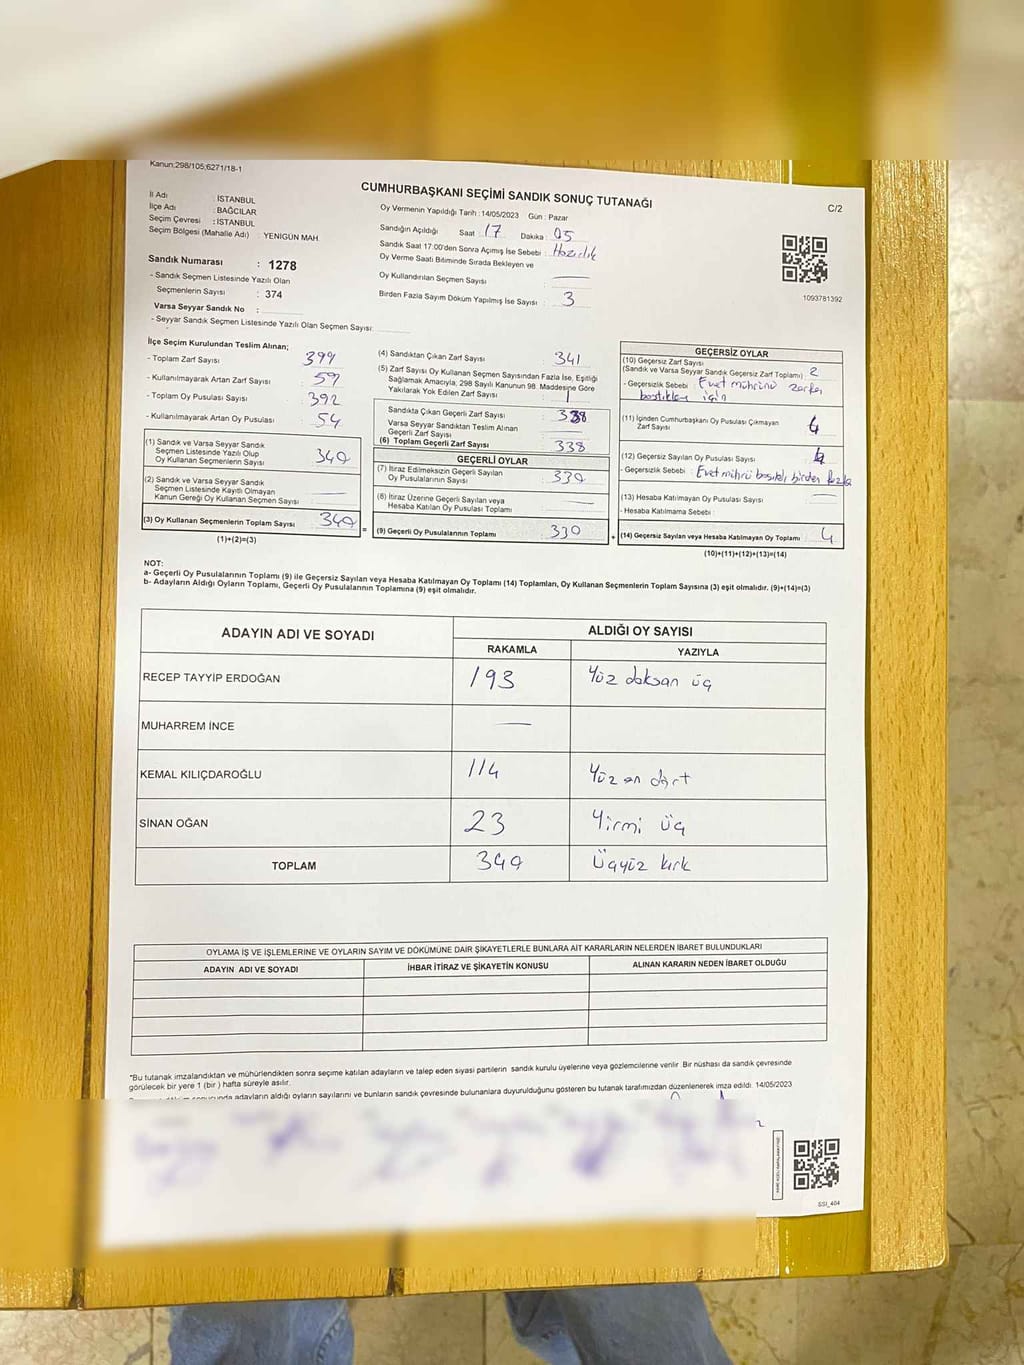 Kanun:298/105;6271/18-1
CUMHURBAŞKANI SEÇİMİ SANDIK SONUÇ TUTANAĞI
C/2
İl Adı : İSTANBUL
İlçe Adı : BAĞCILAR
Seçim Çevresi : İSTANBUL
Seçim Bölgesi (Mahalle Adı) : YENİGÜN MAH.
Sandık Numarası : 1278
- Sandık Seçmen Listesinde Yazılı Olan
Seçmenlerin Sayısı : 374
Varsa Seyyar Sandık No :
- Seyyar Sandık Seçmen Listesinde Yazılı Olan Seçmen Sayısı:
Oy Vermenin Yapıldığı Tarih : 14/05/2023 Gün : Pazar
Sandığın Açıldığı Saat : 17 Dakika : 05
Sandık Saat 17:00'den Sonra Açımış İse Sebebi : Hazırlık
Oy Verme Saati Bitiminde Sırada Bekleyen ve
Oy Kullandırılan Seçmen Sayısı :
Birden Fazla Sayım Döküm Yapılmış İse Sayısı : 3
1093781392
İlçe Seçim Kurulundan Teslim Alınan;
- Toplam Zarf Sayısı : 399
- Kullanılmayarak Artan Zarf Sayısı : 59
- Toplam Oy Pusulası Sayısı : 392
- Kullanılmayarak Artan Oy Pusulası : 54
(1) Sandık ve Varsa Seyyar Sandık
Seçmen Listesinde Yazılı Olup
Oy Kullanan Seçmenlerin Sayısı : 340
(2) Sandık ve Varsa Seyyar Sandık
Seçmen Listesinde Kayıtlı Olmayan
Kanun Gereği Oy Kullanan Seçmen Sayısı :
(3) Oy Kullanan Seçmenlerin Toplam Sayısı : 340
(1)+(2)=(3)
(4) Sandıktan Çıkan Zarf Sayısı : 341
(5) Zarf Sayısı Oy Kullanan Seçmen Sayısından Fazla İse, Eşitliği
Sağlamak Amacıyla, 298 Sayılı Kanunun 98. Maddesine Göre
Yakılarak Yok Edilen Zarf Sayısı : 1
Sandıkta Çıkan Geçerli Zarf Sayısı : 338
Varsa Seyyar Sandıktan Teslim Alınan
Geçerli Zarf Sayısı :
(6) Toplam Geçerli Zarf Sayısı : 338
GEÇERLİ OYLAR
(7) İtiraz Edilmeksizin Geçerli Sayılan
Oy Pusulalarının Sayısı : 330
(8) İtiraz Üzerine Geçerli Sayılan veya
Hesaba Katılan Oy Pusulası Toplamı :
(9) Geçerli Oy Pusulalarının Toplamı : 330
GEÇERSİZ OYLAR
(10) Geçersiz Zarf Sayısı
(Sandık ve Varsa Seyyar Sandık Geçersiz Zarf Toplamı) : 2
- Geçersizlik Sebebi : Evet mührünü zarfa
bastıkları için
(11) İçinden Cumhurbaşkanı Oy Pusulası Çıkmayan
Zarf Sayısı : 4
(12) Geçersiz Sayılan Oy Pusulası Sayısı : 4
- Geçersizlik Sebebi : Evet mührü basıldı birden fazla
(13) Hesaba Katılmayan Oy Pusulası Sayısı :
- Hesaba Katılmama Sebebi :
(14) Geçersiz Sayılan veya Hesaba Katılmayan Oy Toplamı : 4
(10)+(11)+(12)+(13)=(14)
NOT:
a- Geçerli Oy Pusulalarının Toplamı (9) ile Geçersiz Sayılan veya Hesaba Katılmayan Oy Toplamı (14) Toplamları, Oy Kullanan Seçmenlerin Toplam Sayısına (3) eşit olmalıdır. (9)+(14)=(3)
b- Adayların Aldığı Oyların Toplamı, Geçerli Oy Pusulalarının Toplamına (9) eşit olmalıdır.
ADAYIN ADI VE SOYADI ALDIĞI OY SAYISI
RAKAMLA YAZIYLA
RECEP TAYYİP ERDOĞAN 193 Yüz doksan üç
MUHARREM İNCE
KEMAL KILIÇDAROĞLU 114 Yüz on dört
SİNAN OĞAN 23 Yirmi üç
TOPLAM 340 Üçyüz kırk
OYLAMA İŞ VE İŞLEMLERİNE VE OYLARIN SAYIM VE DÖKÜMÜNE DAİR ŞİKAYETLERLE BUNLARA AİT KARARLARIN NELERDEN İBARET BULUNDUKLARI
ADAYIN ADI VE SOYADI İHBAR İTİRAZ VE ŞİKAYETİN KONUSU ALINAN KARARIN NEDEN İBARET OLDUĞU
*Bu tutanak imzalandıktan ve mühürlendikten sonra seçime katılan adayların ve talep eden siyasi partilerin sandık kurulu üyelerine veya gözlemcilerine verilir. Bir nüshası da sandık çevresinde
görülecek bir yere 1 (bir) hafta süreyle asılır.
adayların aldığı oyların sayılarını ve bunların sandık çevresinde bulunanlara duyurulduğunu gösteren bu tutanak tarafımızdan düzenlenerek imza edildi. 14/05/2023
SSI_404